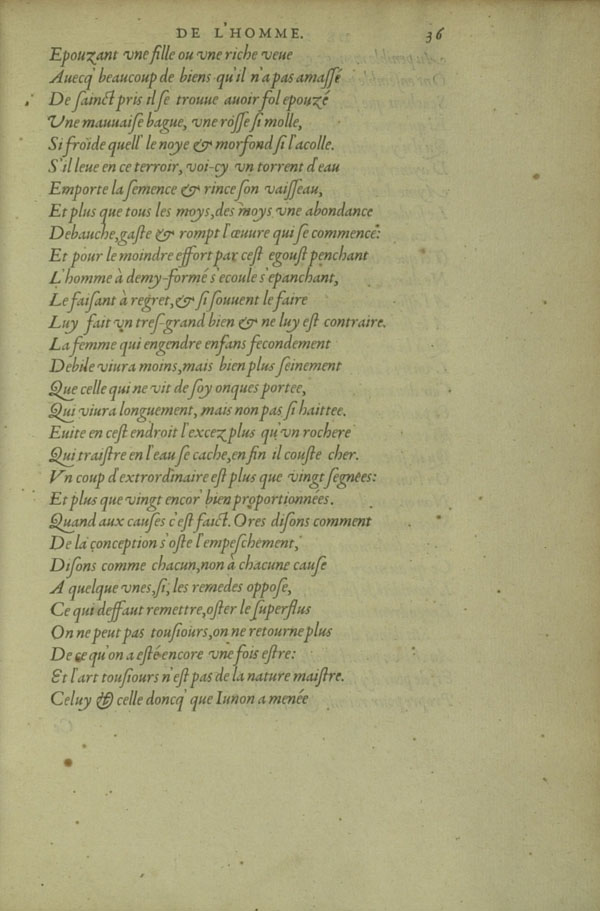 DE L'HOMME. 36
Epouzant vne fille ou vne riche veue
Auecq' beaucoup de biens qu'il n'a pas amassé
De sainct pris il se trouue auoir fol epouzé
Vne mauuaise bague, vne rosse si molle,
Si froide quell' le noye & morfond si l'acolle.
S'il leue en ce terroir, voi-cy vn torrent d'eau
Emporte la semence & rince son vaisseau,
Et plus que tous les moys, des moys vne abondance
Debauche, gaste & rompt l'œuure qui se commence:
Et pour le moindre effort par cest egoust penchant
L'homme à demy-formé s'ecoule s'epanchant,
Le faisant à regret, & si souuent le faire
Luy fait vn tres-grand bien & ne luy est contraire.
La femme qui engendre enfans fecondement
Debile viura moins, mais bien plus seinement
Que celle qui ne vit de soy onques portee,
Qui viura longuement, mais non pas si haittee.
Euite en cest endroit l'excez plus qu'vn rochere
Qui traistre en l'eau se cache, en fin il couste cher.
Vn coup d'extrordinaire est plus que vingt segnées:
Et plus que vingt encor' bien proportionnées.
Quand aux causes c'est faict. Ores disons comment
De la conception s'oste l'empeschement,
Disons comme chacun, non à chacune cause
A quelque vnes, si, les remedes oppose,
Ce qui deffaut remettre, oster le superflus
On ne peut pas tousiours, on ne retourne plus
De ce qu'on a esté encore vne fois estre:
Et l'art tousiours n'est pas de la nature maistre.
Celuy & celle doncq' que Iunon a menée